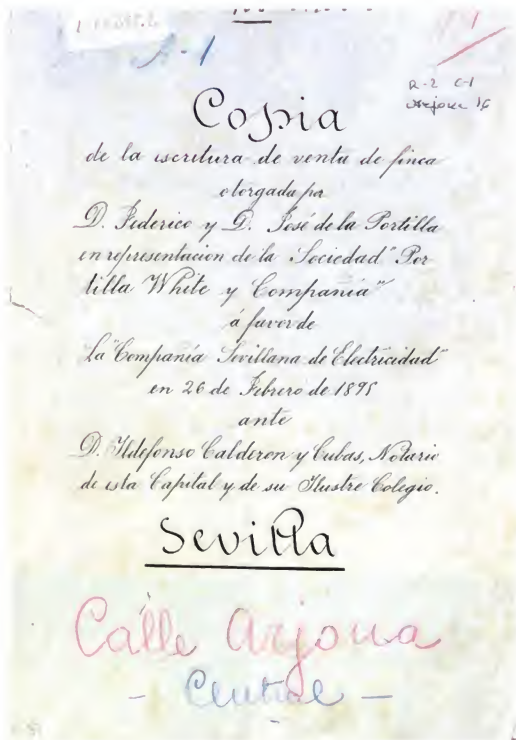 A-1
1
R-2 C-1
Arjona 16
Copia
de la escritura de venta de finca
otorgada por
D. Federico y D. José de la Portilla
en representación de la Sociedad "Por
tilla White y Compañia"
á favor de
La "Compañía Sevillana de Electricidad"
en 26 de Febrero de 1895
ante
D. Ildefonso Calderon y Cubas, Notario
de esta Capital y de su Ilustre Colegio.
Sevilla
Calle Arjona
- Central -